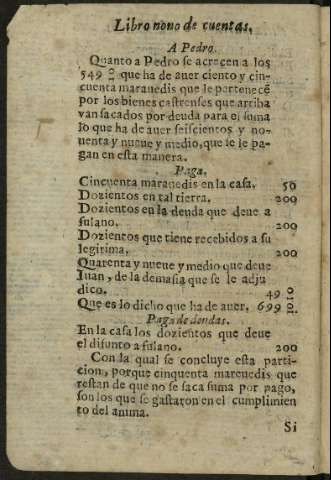 Libro nono de cuentas.
A Pedro.
Quanto a Pedro se acrecen a los
549 que ha de auer ciento y cin-
cuenta marauedis que le pertenecẽ
por los bienes castrenses que arriba
van sacados por deuda para el suma
lo que ha de auer seiscientos y no-
uenta y nueue y medio, que le le pa-
gan en esta manera.
Paga.
Cincuenta marauedis en la casa. 50
Dozientos en tal tierra. 200
Dozientos en la deuda que deue a
fulano. 200
Dozientos que tiene recebidos a su
legitima. 200
Quarenta y nueue y medio que deue
Iuan, de la demasia que se le adju
dico. 49
Que es lo dicho que ha de auer. 699
Paga de deudas.
En la casa los dozientos que deue
el difunto a fulano. 200
Con la qual se concluye esta parti-
cion, porque cinquenta marauedis que
restan de que no se saca suma por pago,
son los que se gastaron en el cumplimien
to del anima.
Si